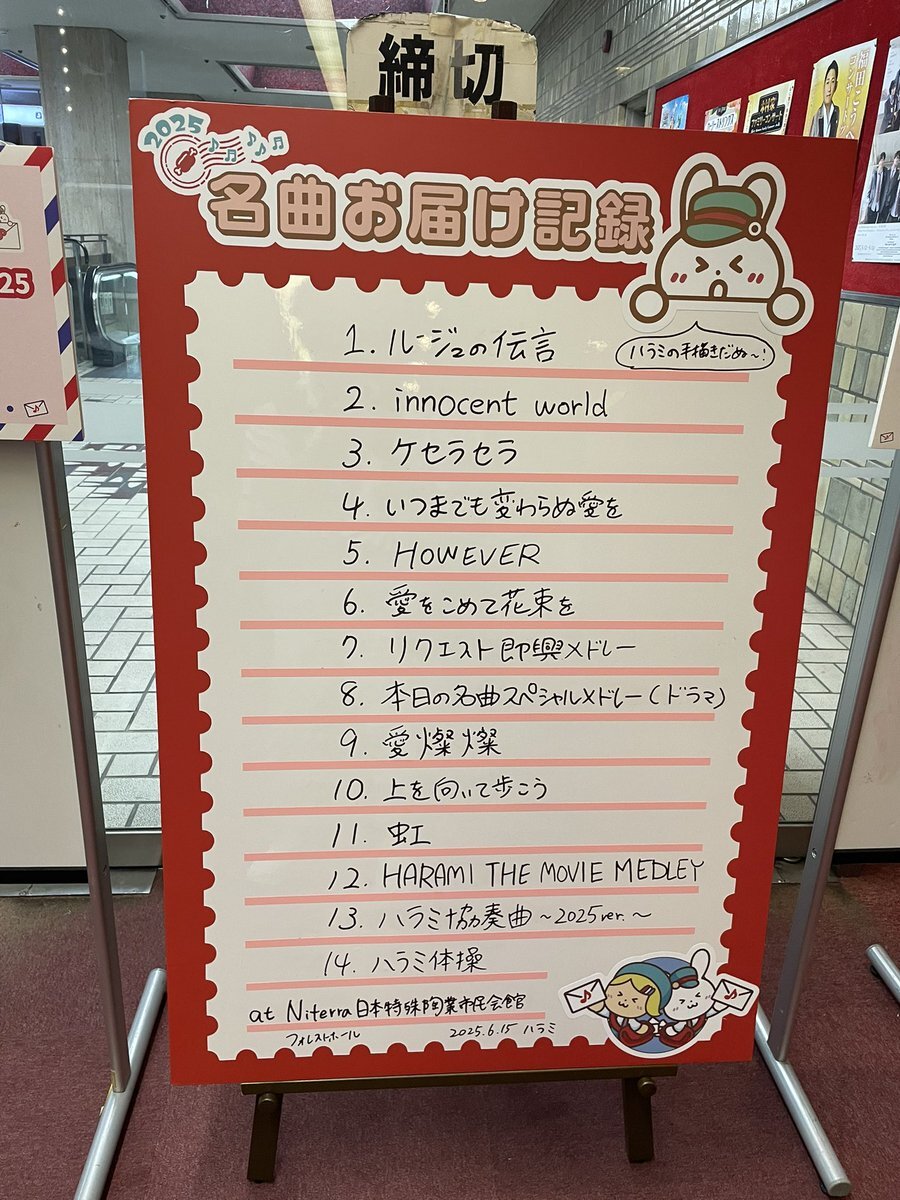 締切
2025
名曲お届け記録
ハラミの手描きだぬ〜!
1. ルージュの伝言
2. innocent world
3. ケセラセラ
4. いつまでも変わらぬ愛を
5. HOWEVER
6. 愛をこめて花束を
7. リクエスト即興メドレー
8. 本日の名曲スペシャルメドレー(ドラマ)
9. 愛燦燦
10. 上を向いて歩こう
11. 虹
12. HARAMI THE MOVIE MEDLEY
13. ハラミ協奏曲〜2025ver.〜
14. ハラミ体操
at Niterra日本特殊陶業市民会館
フォレストホール 2025.6.15 ハラミ
25